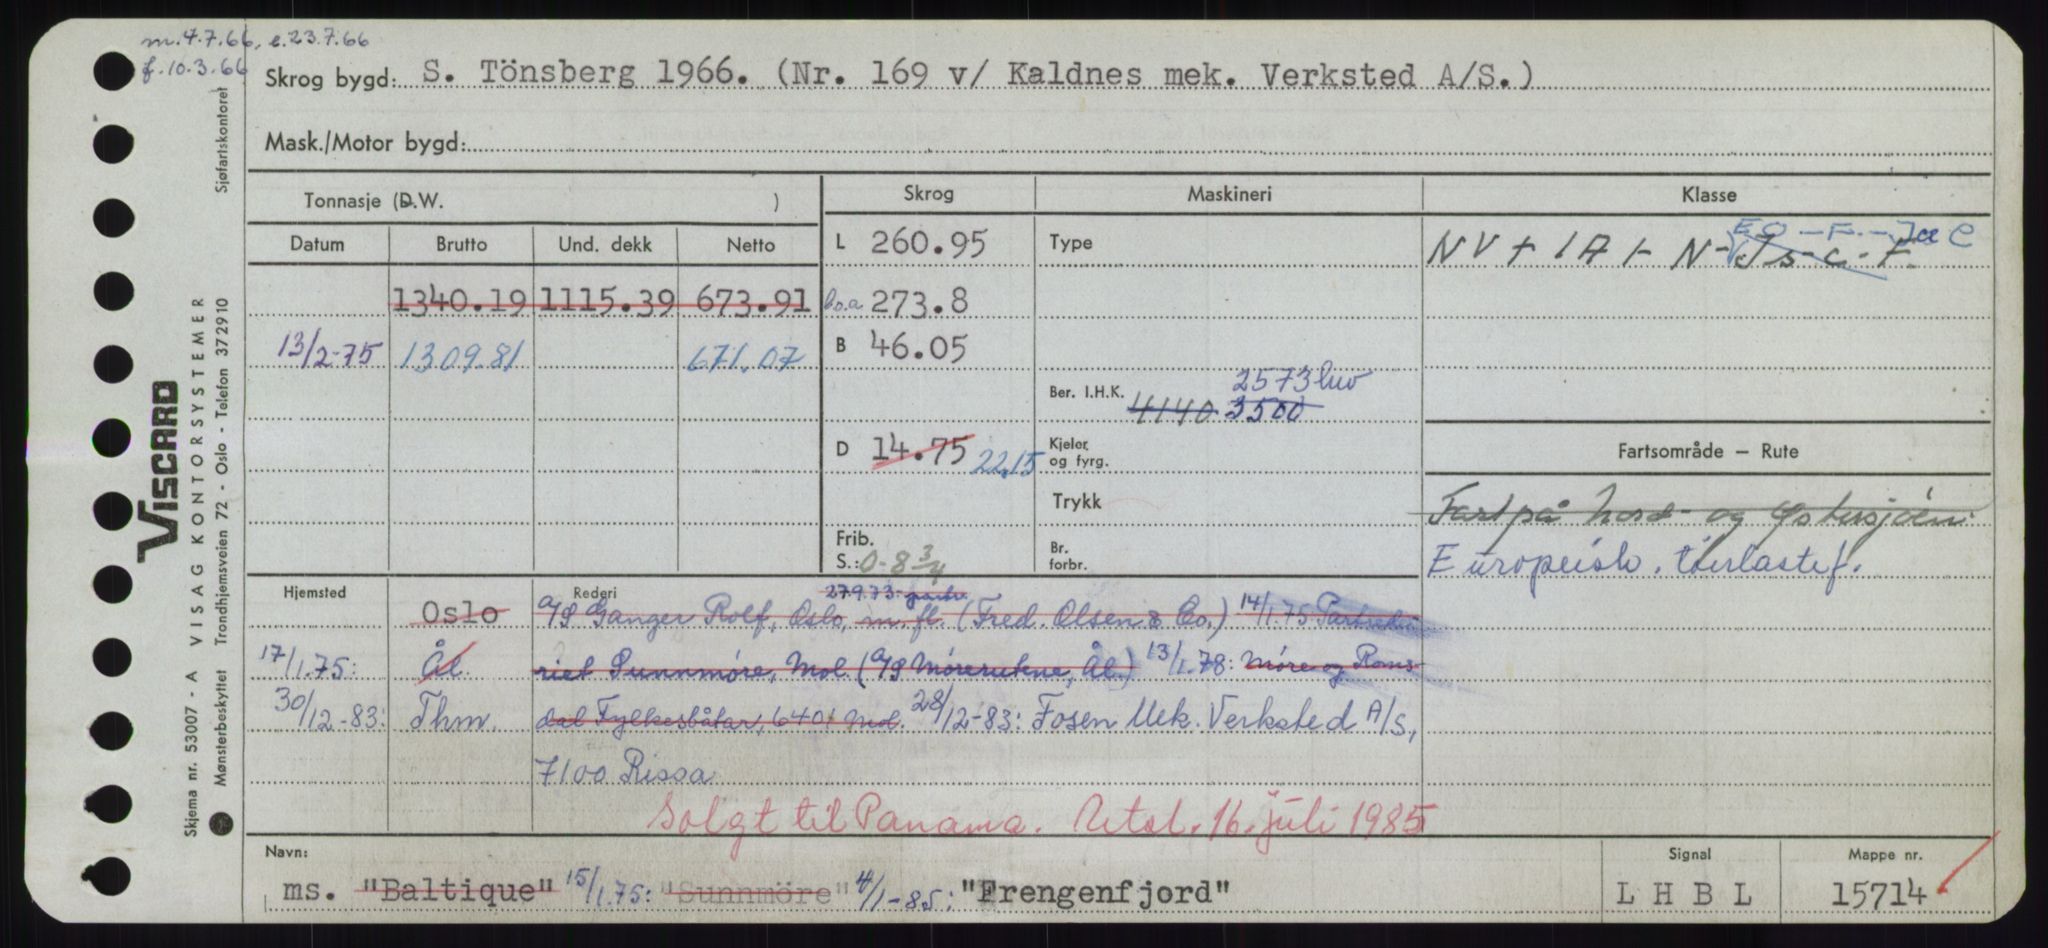 m. 4.7.66, e. 23.7.66
f. 10.3.66
Skrog bygd: S. Tönsberg 1966. (Nr. 169 v/ Kaldnes mek. Verksted A/S.)
Mask./Motor bygd:
Tonnasje (D.W. )
Skrog
Maskineri
Klasse
Datum Brutto Und. dekk Netto
L 260.95
Type
EO - F. - Ice C
NV + 1A 1 - N - Is - C - F.
1340.19 1115.39 673.91
l.o.a 273.8
13/2-75 1309.81 671.07
B 46.05
2573 hw
Ber. I.H.K. 4140 3500
D 14.75 22,15
Kjeler og fyrg.
Fartsområde — Rute
Trykk
Fart på Nord- og Østersjøen.
Frib.
S.: 0-8 3/4
Br. forbr.
Europeisk. tørrlastef.
Hjemsted
Rederi
27.9.73: partr.
Oslo A/S Ganger Rolf, Oslo, m. fl. (Fred. Olsen & Co.) 14/1.75 Partrede-
17/1.75: Ål. riet Sunnmøre, Mol. (A/S Mørerutene, Ål.) 13/1.78: Møre og Roms-
30/12-83: Thm. dal Fylkesbåtar, 6401 Mol. 28/12-83: Fosen Mek. Verksted A/S,
7100 Rissa
Solgt til Panama. Utsl. 16. juli 1985
Navn:
Signal
Mappe nr.
ms. "Baltique" 15/1.75: "Sunnmöre" 4/1-85: "Frengenfjord"
L H B L
15714
VISCARD
VISAG KONTORSYSTEMER
Sjøfartskontoret
Trondhjemsveien 72 - Oslo - Telefon 372910
Skjema nr. 53007 - A
Mønsterbeskyttet